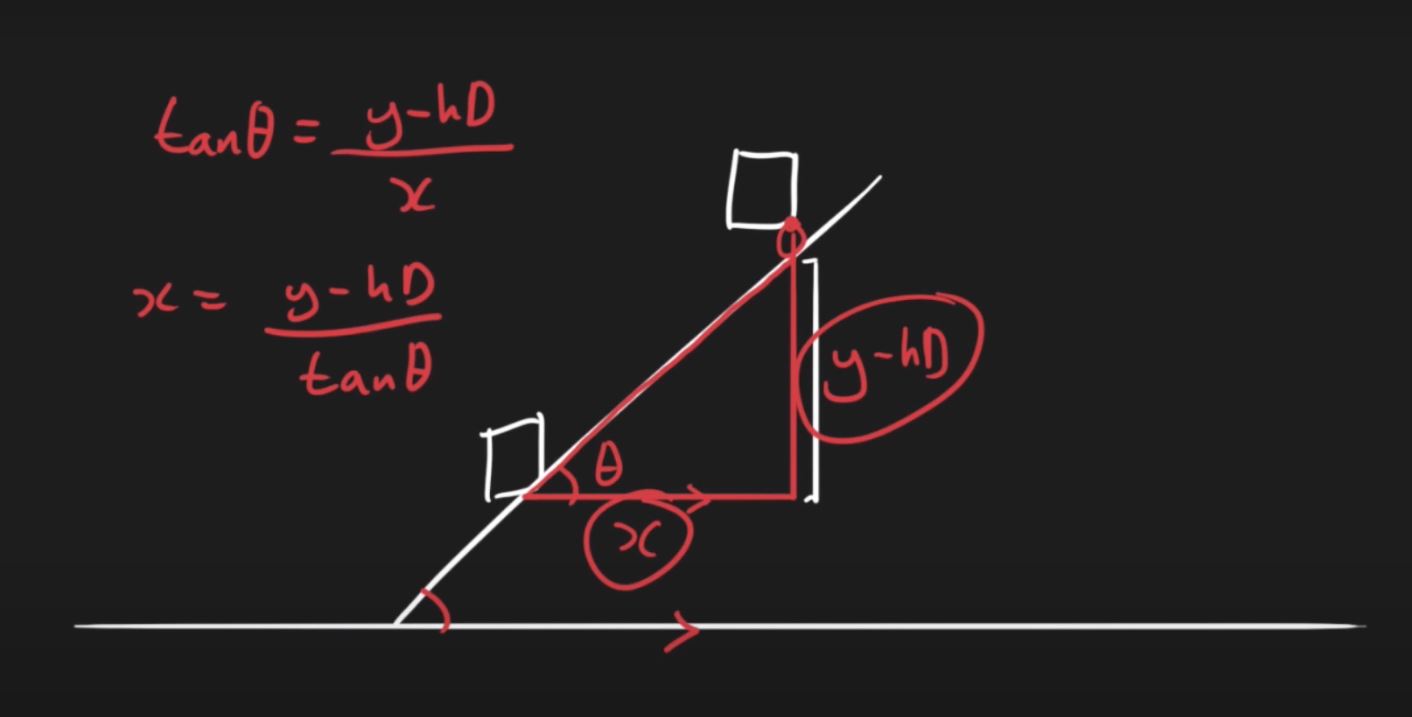 tanθ = y-hD / x
x = y-hD / tanθ
y-hD
θ
x